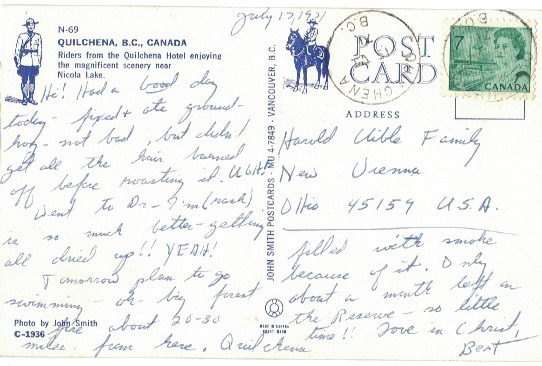 July 17, 1971
N-69
QUILCHENA, B.C., CANADA
Riders from the Quilchena Hotel enjoying
the magnificent scenery near
Nicola Lake.
Hi! Had a good day
today - fixed & ate ground-
hog - not bad, but didn't
get all the hair burned
off before roasting it. UGH!
Went to Dr - I'm (rash)
is so much better - getting
all dried up!! YEAH!
Tomorrow plan to go
swimming or big forest
fire about 20-30
miles from here. Quilchena
Photo by John Smith
C-1936
JOHN SMITH POSTCARDS - MU 4-7849 - VANCOUVER, B.C.
MADE IN CANADA
POST
CARD
QUILCHENA
B.C.
7
CANADA
ADDRESS
Harold Uible Family
New Vienna
Ohio 45159 U.S.A.
filled with smoke
because of it. Only
about a month left on
the Reserve - so little
time!! Love in Christ,
Bert